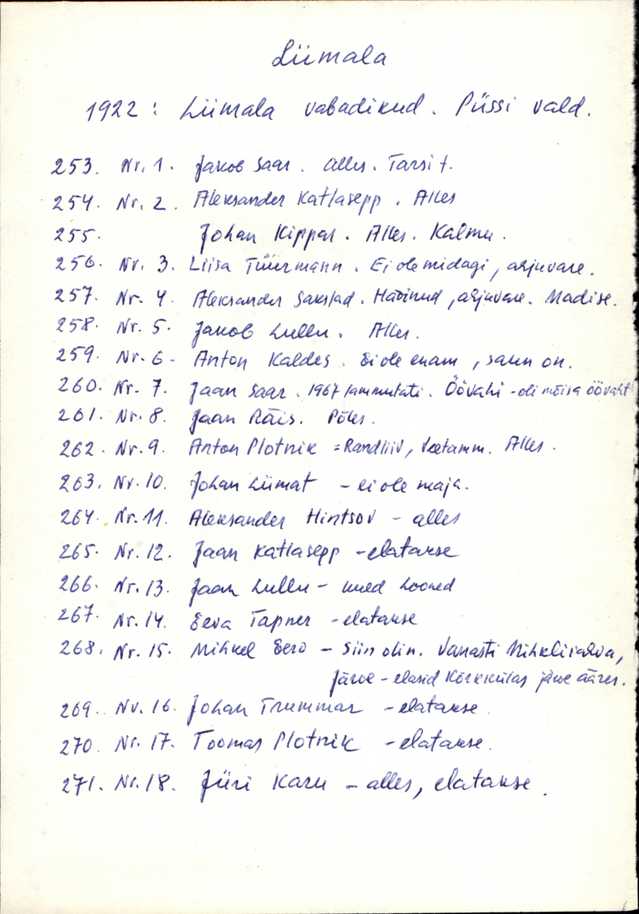 Liimala
1922: Liimala vabadikud. Püssi vald.
253. Nr. 1. Jakob Saar. Alles. Tarsi t.
254. Nr. 2. Aleksander Katlasepp. Alles
255. Johan Kippar. Alles. Kalmu.
256. Nr. 3. Liisa Tüürmann. Ei ole midagi, asjuvare.
257. Nr. 4. Aleksander Sakslad. Hävinud, asjuvare. Madise.
258. Nr. 5. Jakob Lullu. Alles.
259. Nr. 6 - Anton Kaldes. Ei ole enam, saun on.
260. Nr. 7. Jaan Saar. 1967 lammutati. Öövahi - oli mõisa öövaht
261. Nr. 8. Jaan Räis. Põles.
262. Nr. 9. Anton Plotnik = Randliiv, Veetamm. Alles.
263. Nr. 10. Johan Liimat - ei ole maja.
264. Nr. 11. Aleksander Hintsov - alles
265. Nr. 12. Jaan Katlasepp - elatakse
266. Nr. 13. Jaan Lullu - uued hooned
267. Nr. 14. Eeva Tapner - elatakse
268. Nr. 15. Mihkel Eero - Siin olin. Vanasti Mihklirahva,
Järve - elasid Kõrkkülas järve ääres.
269. Nr. 16. Johan Trummar - elatakse.
270. Nr. 17. Toomas Plotnik - elatakse.
271. Nr. 18. Jüri Karu - alles, elatakse.